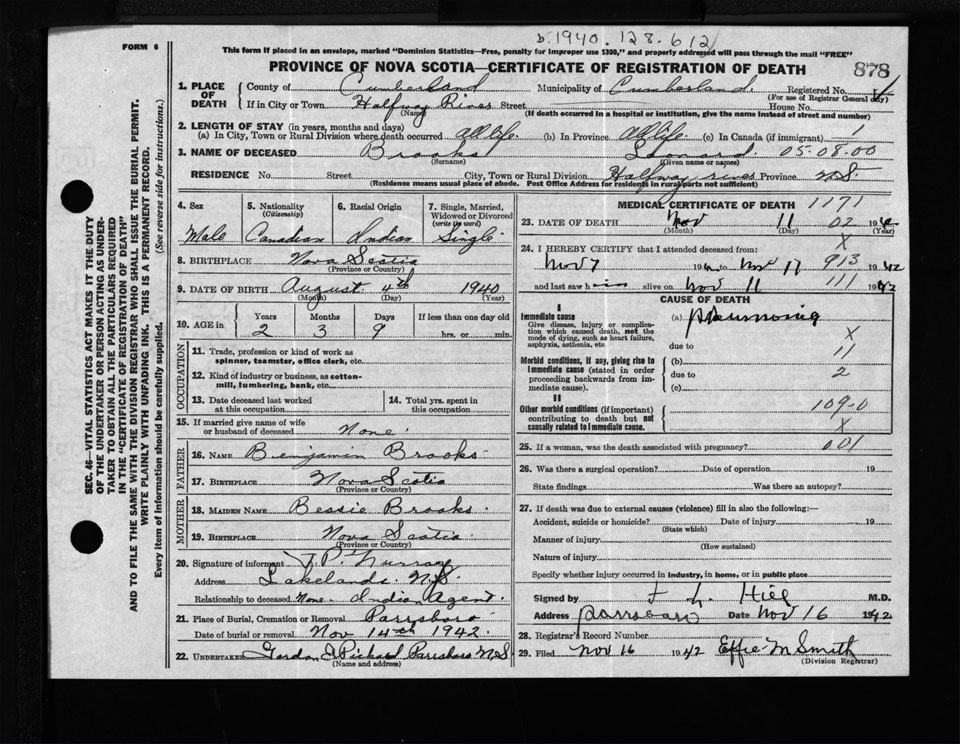 b. 1940. 128. 612
FORM 6
This form if placed in an envelope, marked "Dominion Statistics—Free, penalty for improper use $300," and properly addressed will pass through the mail "FREE"
PROVINCE OF NOVA SCOTIA—CERTIFICATE OF REGISTRATION OF DEATH
878
1. PLACE OF DEATH
County of Cumberland Municipality of Cumberland. Registered No.
(For use of Registrar General only)
If in City or Town Halfway River Street House No.
(Name) (If death occurred in a hospital or institution, give the name instead of street and number)
2. LENGTH OF STAY (in years, months and days)
(a) In City, Town or Rural Division where death occurred all life. (b) In Province all life. (c) In Canada (if immigrant) 1
3. NAME OF DECEASED Brooks Leonard. 05-08-00
(Surname) (Given name or names)
RESIDENCE No. Street City, Town or Rural Division Halfway river Province N.S.
(Residence means usual place of abode. Post Office Address for residents in rural parts not sufficient)
4. Sex
Male
5. Nationality
(Citizenship)
Canadian
6. Racial Origin
Indian
7. Single, Married, Widowed or Divorced
(write the word)
Single
8. BIRTHPLACE Nova Scotia
(Province or Country)
9. DATE OF BIRTH August 4th 1940
(Month) (Day) (Year)
10. AGE in
Years Months Days If less than one day old
2 3 9 hrs. or min.
OCCUPATION
11. Trade, profession or kind of work as spinner, teamster, office clerk, etc.
12. Kind of industry or business, as cotton-mill, lumbering, bank, etc.
13. Date deceased last worked at this occupation
14. Total yrs. spent in this occupation
15. If married give name of wife or husband of deceased None.
FATHER
16. NAME Benjamin Brooks
17. BIRTHPLACE Nova Scotia
(Province or Country)
MOTHER
18. MAIDEN NAME Bessie Brooks.
19. BIRTHPLACE Nova Scotia.
(Province or Country)
20. Signature of informant J. P. Murray
Address Lakelands. N.S.
Relationship to deceased None. Indian Agent.
21. Place of Burial, Cremation or Removal Parrsboro
Date of burial or removal Nov 14th 1942.
22. UNDERTAKER Gordon Parrsboro N.S.
(Name and address)
MEDICAL CERTIFICATE OF DEATH 1171
23. DATE OF DEATH Nov 11 02 194
(Month) (Day) (Year)
X
24. I HEREBY CERTIFY that I attended deceased from:
Nov 7 194 to Nov 11 913 1942
and last saw him alive on Nov 11 111 1942
CAUSE OF DEATH
I
Immediate cause (a) pneumonia
Give disease, injury or complication which caused death, not the mode of dying, such as heart failure, asphyxia, asthenia, etc.
X
due to 11
Morbid conditions, if any, giving rise to immediate cause (stated in order proceeding backwards from immediate cause).
(b)
due to 2
(c)
II
109-0
Other morbid conditions (if important) contributing to death but not causally related to immediate cause.
X
25. If a woman, was the death associated with pregnancy? 001
26. Was there a surgical operation? Date of operation 19
State findings Was there an autopsy?
27. If death was due to external causes (violence) fill in also the following:—
Accident, suicide or homicide? Date of injury 19
(State which)
Manner of injury
(How sustained)
Nature of injury
Specify whether injury occurred in industry, in home, or in public place
Signed by Hill M.D.
Address Parrsboro Date Nov 16 1942
28. Registrar's Record Number
29. Filed Nov 16 1942 Effie M Smith
(Division Registrar)
SEC. 46—VITAL STATISTICS ACT MAKES IT THE DUTY
OF THE UNDERTAKER OR PERSON ACTING AS UNDER-
TAKER TO OBTAIN ALL THE PARTICULARS REQUIRED
IN THE "CERTIFICATE OF REGISTRATION OF DEATH"
AND TO FILE THE SAME WITH THE DIVISION REGISTRAR WHO SHALL ISSUE THE BURIAL PERMIT.
WRITE PLAINLY WITH UNFADING INK. THIS IS A PERMANENT RECORD.
Every item of information should be carefully supplied. (See reverse side for instructions.)